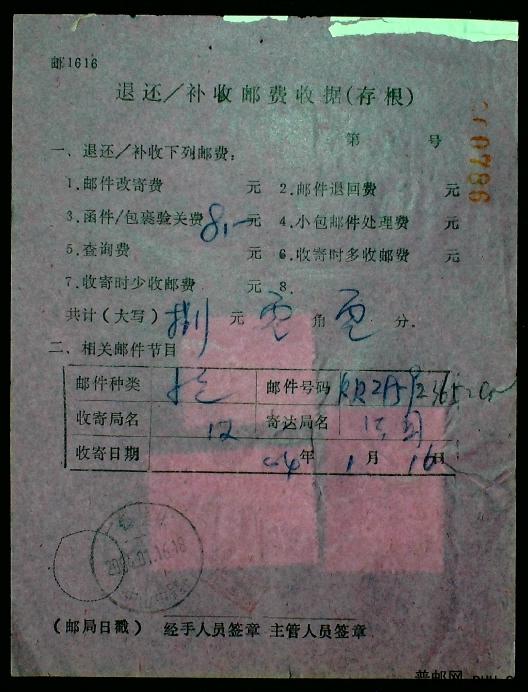 邮1616
退还／补收邮费收据(存根)
第 号
一、退还／补收下列邮费：
1.邮件改寄费 元 2.邮件退回费 元
3.函件/包裹验关费 8.— 元 4.小包邮件处理费 元
5.查询费 元 6.收寄时多收邮费 元
7.收寄时少收邮费 元 8.
共计（大写） 捌 元 零 角 零 分.
二、相关邮件节目
邮件种类 邮件号码
收寄局名 汉 寄达局名 法国
收寄日期 04年 1月 16日
2004.01.16.18
(邮局日戳) 经手人员签章 主管人员签章
普邮网